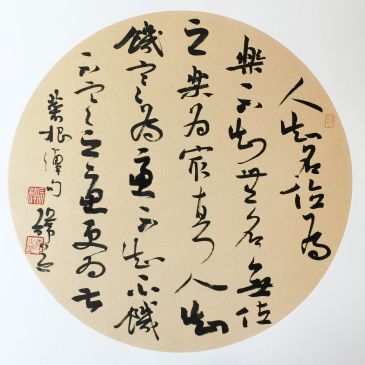 人知名位為
樂不知無名無位
之樂為最真人知
饑寒為憂不知不饑
不寒之憂更為甚
菜根譚句